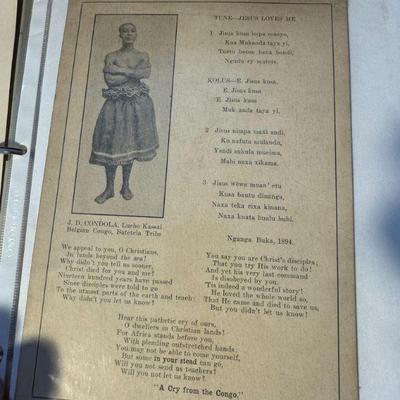 TUNE—JESUS LOVES ME
1 Jisus kusa
Kua Mukanda taya yi,
Tustu beens bena bandi,
Ngudu ey
KOLUS—E Jisus kusa,
E. Jisus kusa
E Jisus kusa
Muk anda taya yi.
2 Jisus maxi andi,
Ku nafutu mulandu,
Yendi sukula mucima,
Mabi naxa xikama.
3 Jisus wewe muan' etu
Kusa bantu dinanga,
Naxa teka rixa kinana,
Naxa kuata bualu bubi.
Nganga Buka, 1894.
J. D. CONDOLA, Luebo Kasai
Belgian Congo, Batetela Tribe
We appeal to you, O Christians,
In lands beyond the sea!
Why didn't you tell us sooner,
Christ died for you and me!
Nineteen hundred years have passed
Since disciples were told to go
To the utmost parts of the earth and teach;
Why didn't you let us know!
You say you are Christ's disciples;
That you try His work to do!
And yet his very last command
Is disobeyed by you.
'Tis indeed a wonderful story!
He loved the whole world so,
That He came and died to save us,
But you didn't let us know!
Hear this pathetic cry of ours,
O dwellers in Christian lands!
For Africa stands before you,
With pleading outstretched hands.
You may not be able to come yourself,
But some in your stead can go,
Will you not send us teachers?
Will you not let us know!
"A Cry from the Congo."